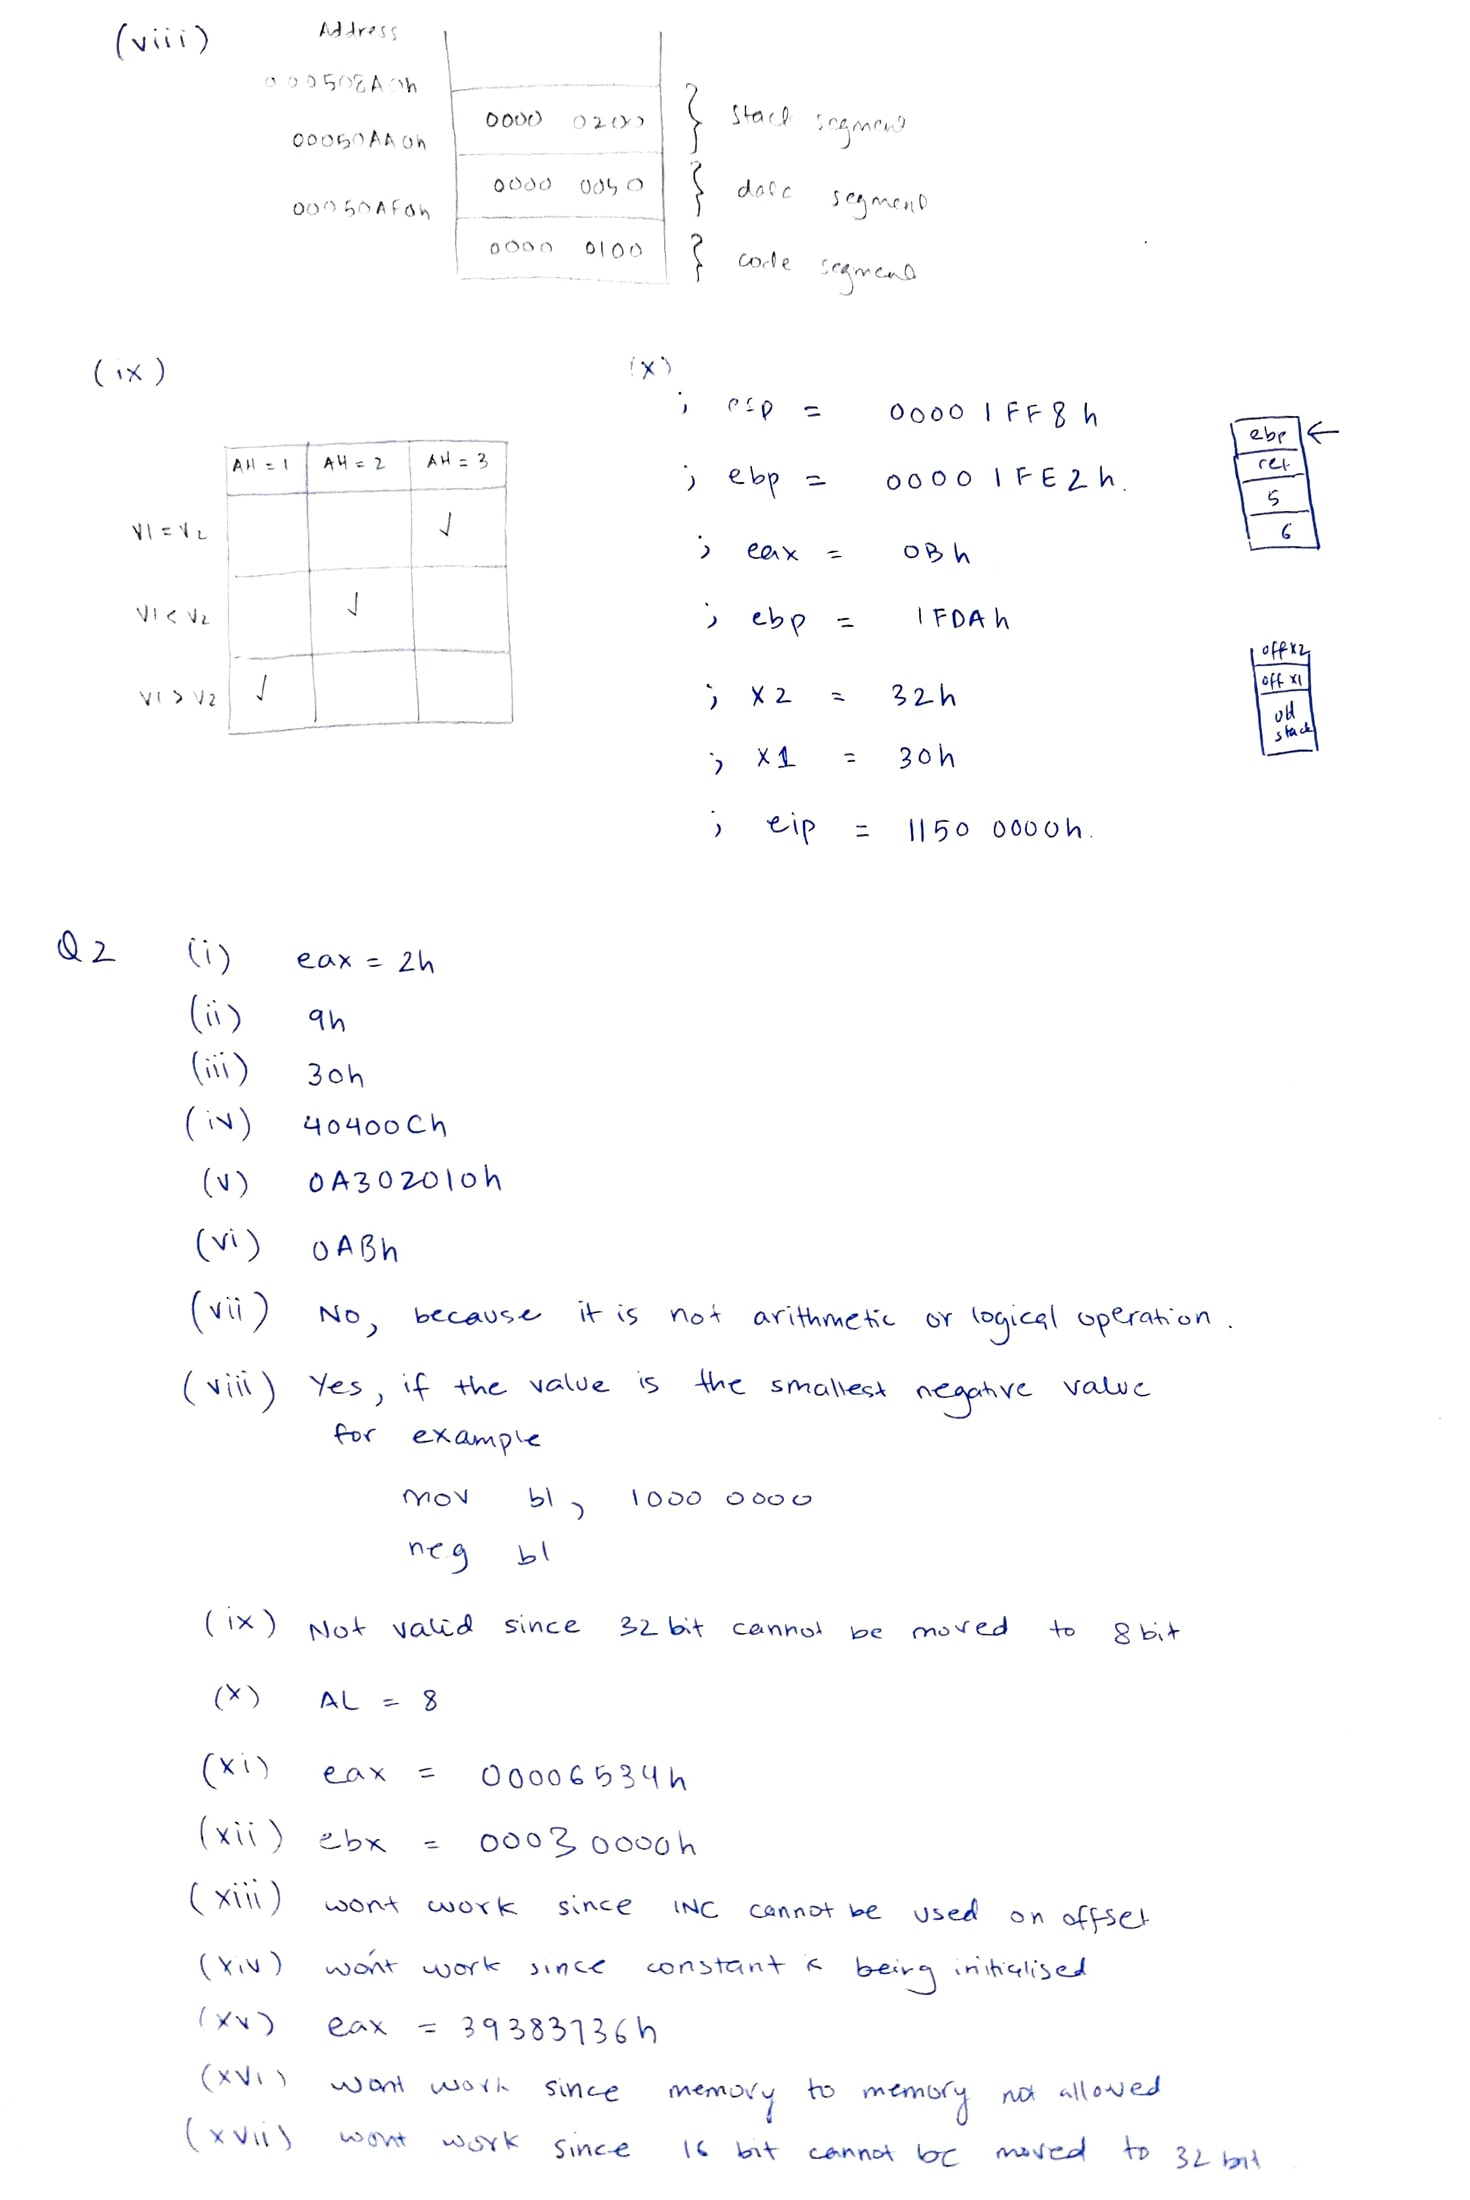 (viii) Address
000508A0h
0000 0200 } stack segment
00050AA0h
0000 0050 } data segment
00050AF0h
0000 0100 } code segment
(ix)
AH = 1 AH = 2 AH = 3
V1 = V2 ✓
V1 < V2 ✓
V1 > V2 ✓
(x)
; esp = 0000 1FF8h
; ebp = 0000 1FE2h.
; eax = 0Bh
; ebp = 1FDAh
; X2 = 32h
; X1 = 30h
; eip = 1150 0000h.
ebp ←
ret
5
6
off x2
off x1
old
stack
Q2 (i) eax = 2h
(ii) 9h
(iii) 30h
(iv) 40400Ch
(v) 0A302010h
(vi) 0ABh
(vii) No, because it is not arithmetic or logical operation.
(viii) Yes, if the value is the smallest negative value
for example
mov bl, 1000 0000
neg bl
(ix) Not valid since 32 bit cannot be moved to 8 bit
(x) AL = 8
(xi) eax = 00006534h
(xii) ebx = 0003 0000h
(xiii) wont work since INC cannot be used on offset
(xiv) won't work since constant is being initialised
(xv) eax = 39383736h
(xvi) wont work since memory to memory not allowed
(xvii) wont work since 16 bit cannot be moved to 32 bit